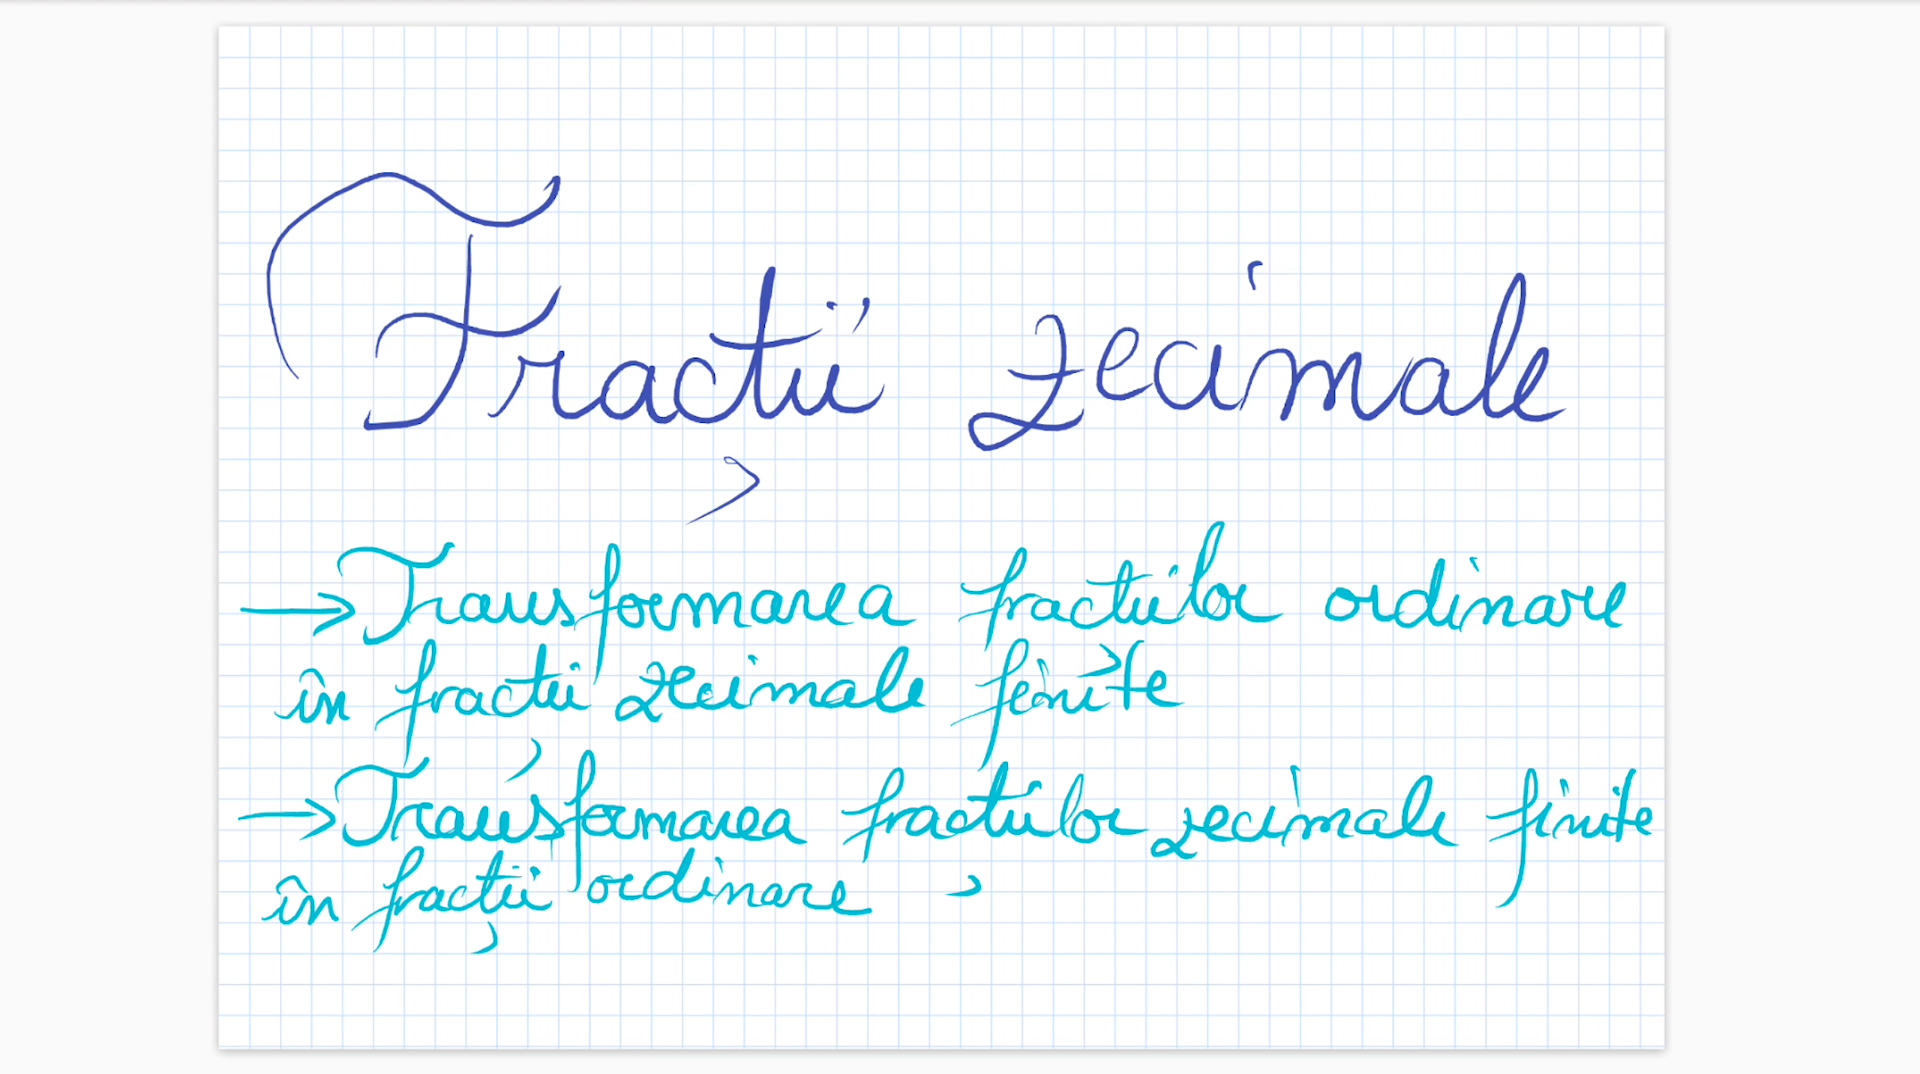 Fracții zecimale
→ Transformarea fracțiilor ordinare
în fracții zecimale finite
→ Transformarea fracțiilor zecimale finite
în fracții ordinare